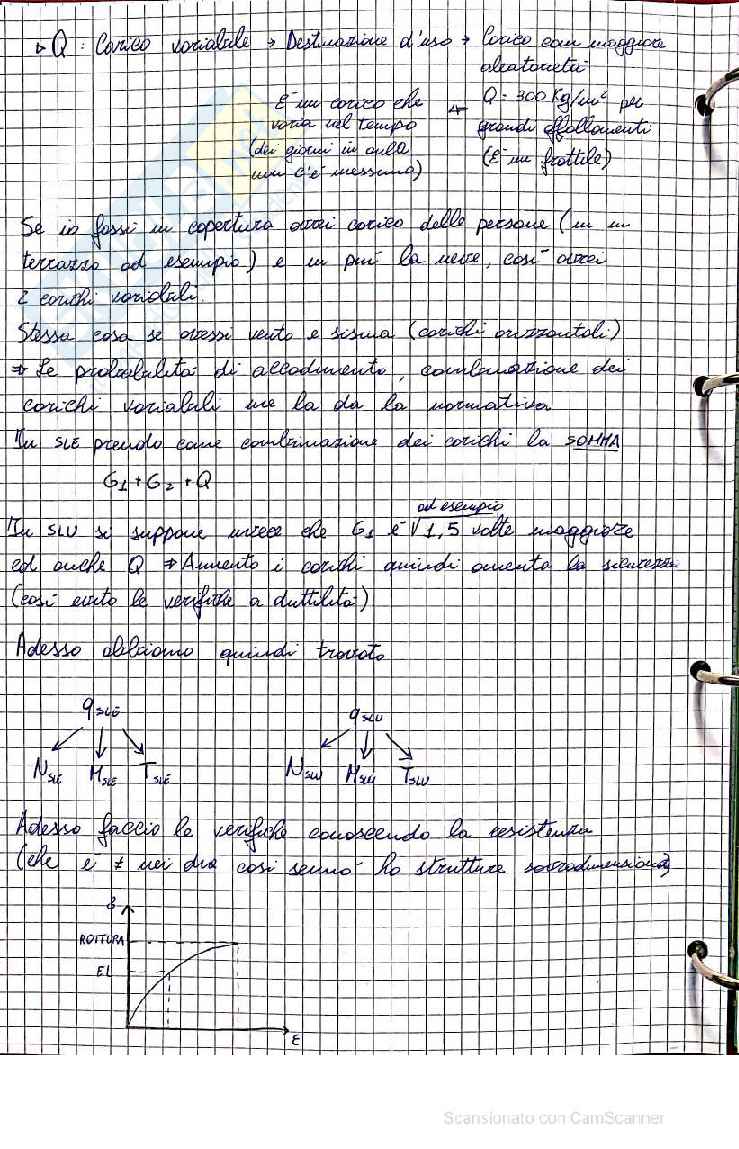 ▷ Q : Carico variabile → Destinazione d'uso → Carico con maggiore
aleatorietà
È un carico che
varia nel tempo
(dei giorni in aula
non c'è nessuno)
← Q = 300 Kg/m² per
grandi affollamenti
(È un frattile)
Se io fossi in copertura avrei carico delle persone (in un
terrazzo ad esempio) e in più la neve, così avrei
2 carichi variabili.
Stessa cosa se avessi vento e sisma (carichi orizzontali)
⇒ Le probabilità di accadimento, combinazione dei
carichi variabili me la da la normativa
In SLE prendo come combinazione dei carichi la SOMMA
G1 + G2 + Q
ad esempio
In SLU si suppone invece che G1 è 1,5 volte maggiore
ed anche Q ⇒ Aumento i carichi quindi aumenta la sicurezza
(così evito le verifiche a duttilità)
Adesso abbiamo quindi trovato
qSLE qSLU
NSLE MSLE TSLE NSLU MSLU TSLU
Adesso faccio le verifiche conoscendo la resistenza
(che è ≠ nei due casi sennò ho strutture sovradimensionate)
ROTTURA
EL
ε
Scansionato con CamScanner